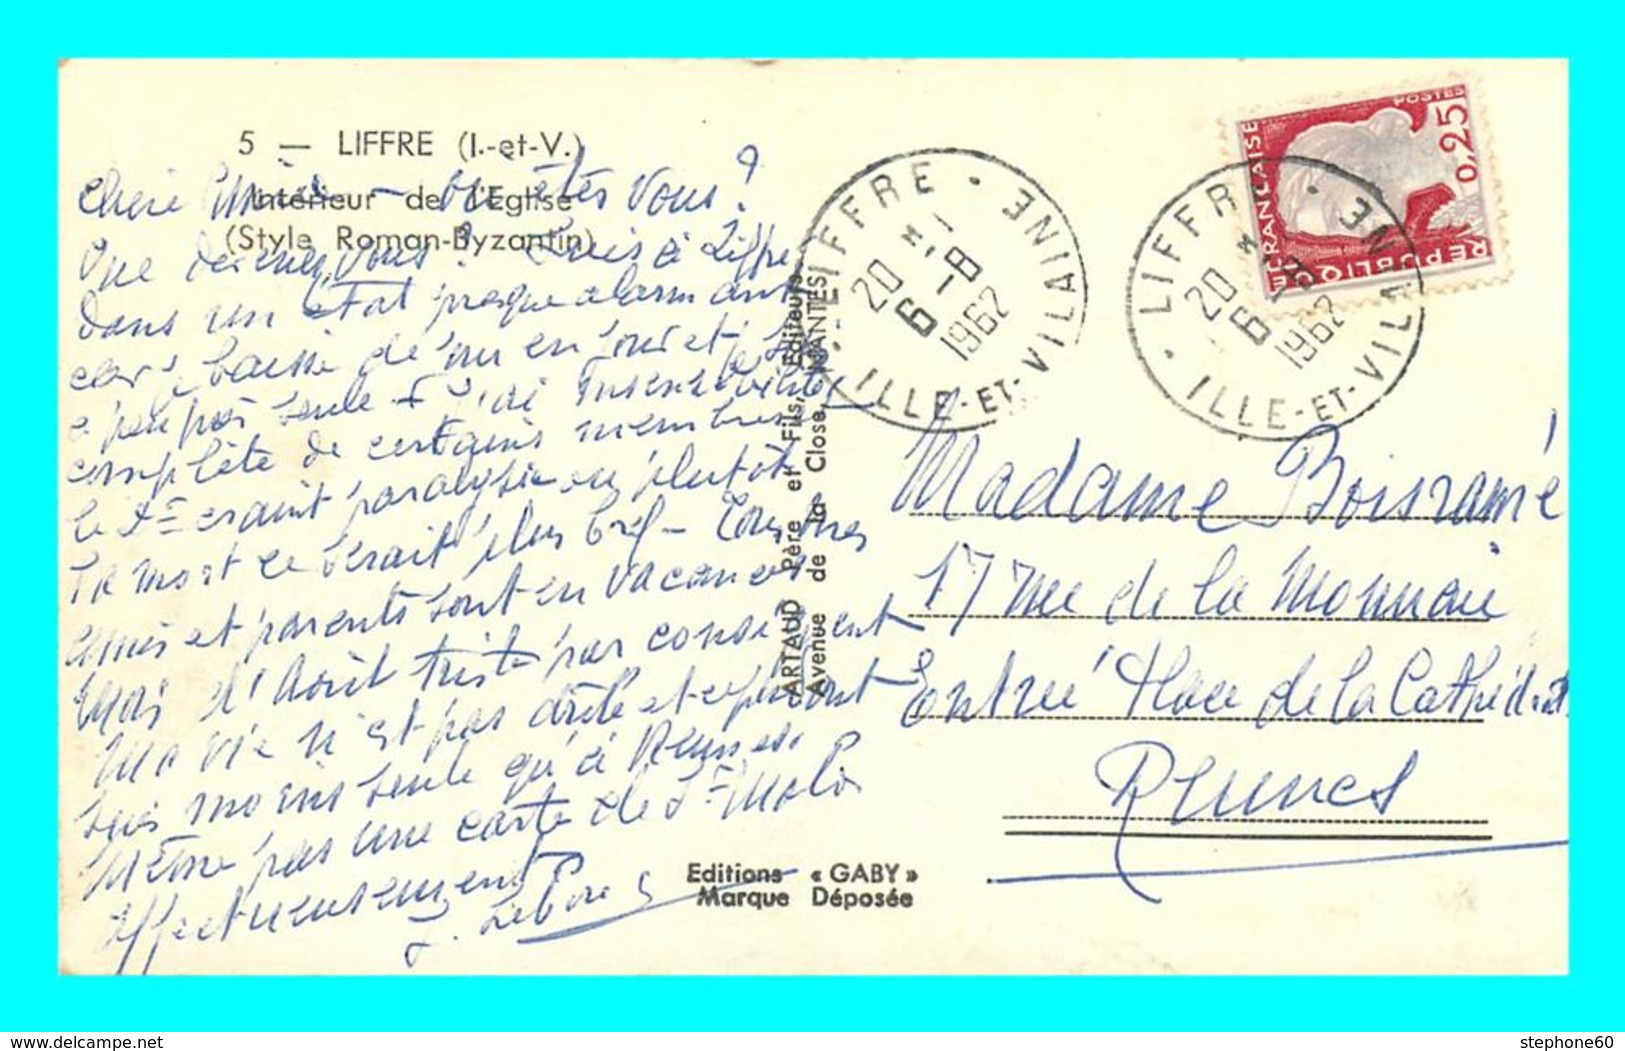 5 — LIFFRE (I.-et-V.)
Intérieur de l'Eglise
(Style Roman-Byzantin)
chère Amie — où êtes vous ?
Que devenez vous ? Suis à Liffré
dans un état presque alarmant
car baisse de jour en jour et je suis
à peu près seule + j'ai insensibilité
complète de certains membres
le Dr craint paralysie ou plutôt
la mort ce serait plus bref — Tous mes
amis et parents sont en vacances
mois d'Août triste par conséquent
Ma vie n'est pas drôle et cependant
suis moins seule qu'à Rennes.
Même pas une carte de St Malo
affectueusement
ARTAUD Père et Fils, Editeurs
Avenue de la Close, NANTES
Editions « GABY »
Marque Déposée
LIFFRE
20 *
6 -8
1962
ILLE-ET-VILAINE
LIFFRE
20 *
6 -8
1962
ILLE-ET-VILAINE
POSTES
0,25
REPUBLIQUE FRANÇAISE
Madame Boisramé
17 rue de la Monnaie
Entrée Place de la Cathédrale
Rennes
www.delcampe.net
stephone60